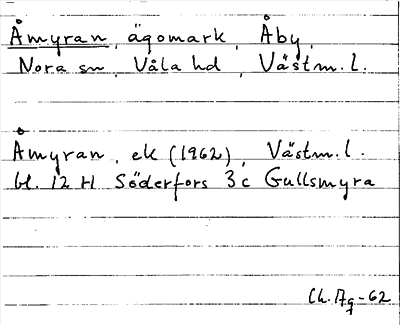 Åmyran, ägomark, Åby,
Nora sn, Våla hd, Västm. l.
Åmyran, ek (1962), Västm. l.
bl. 12 H Söderfors 3 c Gullsmyra
-62